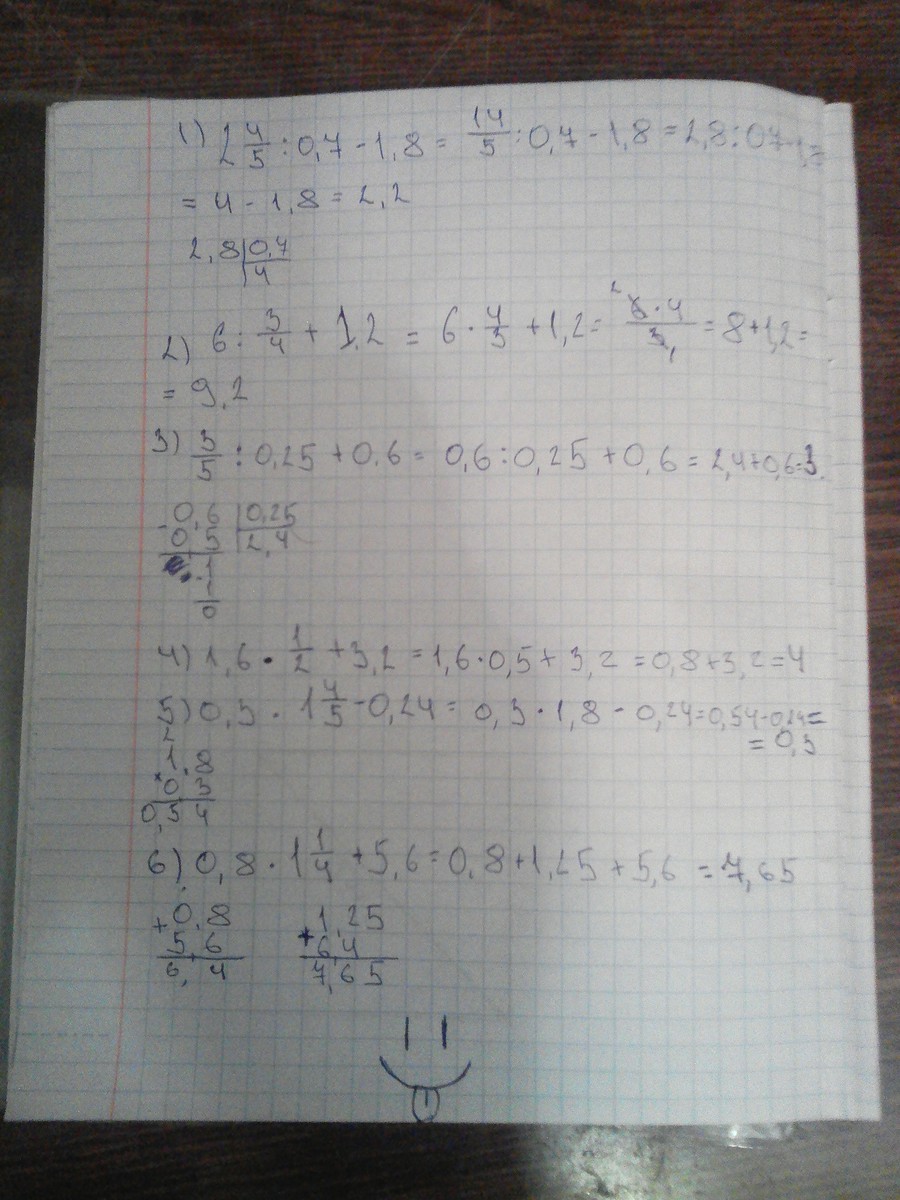 1) 2 4/5 : 0,7 - 1,8 = 14/5 : 0,7 - 1,8 = 2,8 : 07 - 1, =
= 4 - 1,8 = 2,2
2,8 | 0,7
4
2) 6 : 3/4 + 1,2 = 6 · 4/3 + 1,2 = 6 · 4 / 3 = 8 + 1,2 =
= 9,2
3) 3/5 : 0,25 + 0,6 = 0,6 : 0,25 + 0,6 = 2,4 + 0,6 = 3
- 0,6 | 0,25
0,5 | 2,4
- 1
1
0
4) 1,6 · 1/2 + 3,2 = 1,6 · 0,5 + 3,2 = 0,8 + 3,2 = 4
5) 0,3 · 1 4/5 - 0,24 = 0,3 · 1,8 - 0,24 = 0,54 - 0,24 =
= 0,3
2
× 1,8
0 3
0,5 4
6) 0,8 · 1 1/4 + 5,6 = 0,8 + 1,25 + 5,6 = 7,65
+ 0,8 + 1,25
5,6 6,4
6,4 7,65